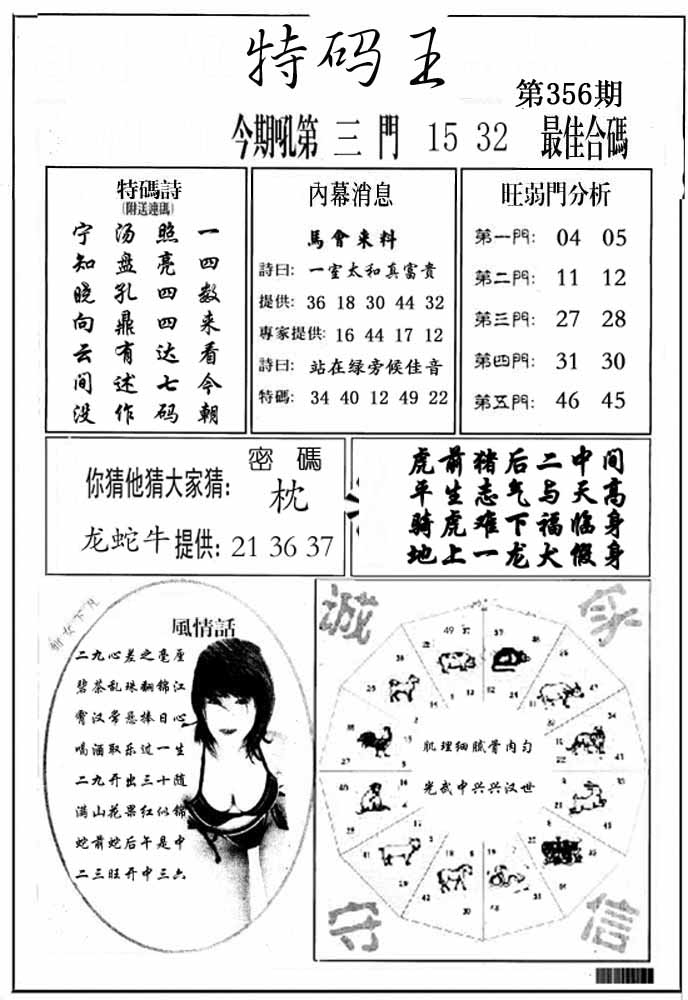 特码王
第356期
今期吼第 三 門 15 32 最佳合碼
特碼詩
(附送連碼)
宁 汤 照 一
知 盘 亮 四
晓 孔 四 数
向 鼎 四 来
云 有 达 看
间 述 七 今
没 作 码 朝
內幕消息
馬會来料
詩曰: 一室太和真富貴
提供: 36 18 30 44 32
專家提供: 16 44 17 12
詩曰: 站在绿旁候佳音
特碼: 34 40 12 49 22
旺弱門分析
第一門: 04 05
第二門: 11 12
第三門: 27 28
第四門: 31 30
第五門: 46 45
密碼
你猜他猜大家猜: 枕
龙蛇牛提供: 21 36 37
虎前猪后二中间
平生志气与天高
骑虎难下福临身
地上一龙大假身
仙女下凡
風情話
二九心差之毫厘
碧茶乱珠翻锦江
霄汉常悬捧日心
喝酒取乐过一生
二九开出三十随
满山花果红似锦
蛇前蛇后午是中
二三旺开中三六
诚 家
肌理细腻骨肉匀
光武中兴兴汉世
守 信